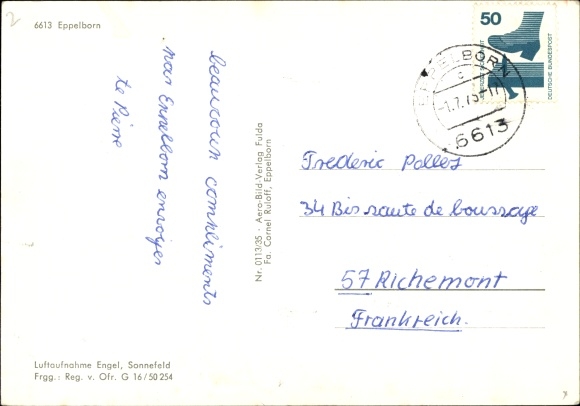 6613 Eppelborn
beaucoup compliments
par Eppelborn envoyer
te Pierre
Nr. 0113/35 · Aero-Bild-Verlag Fulda
Fa. Cornel Ruloff, Eppelborn
50
DEUTSCHE BUNDESPOST
EPPELBORN
6613
Frederic Pallez
34 Bis raute de boussage
57 Richemont
Frankreich.
Luftaufnahme Engel, Sonnefeld
Frgg.: Reg. v. Ofr. G 16/50 254